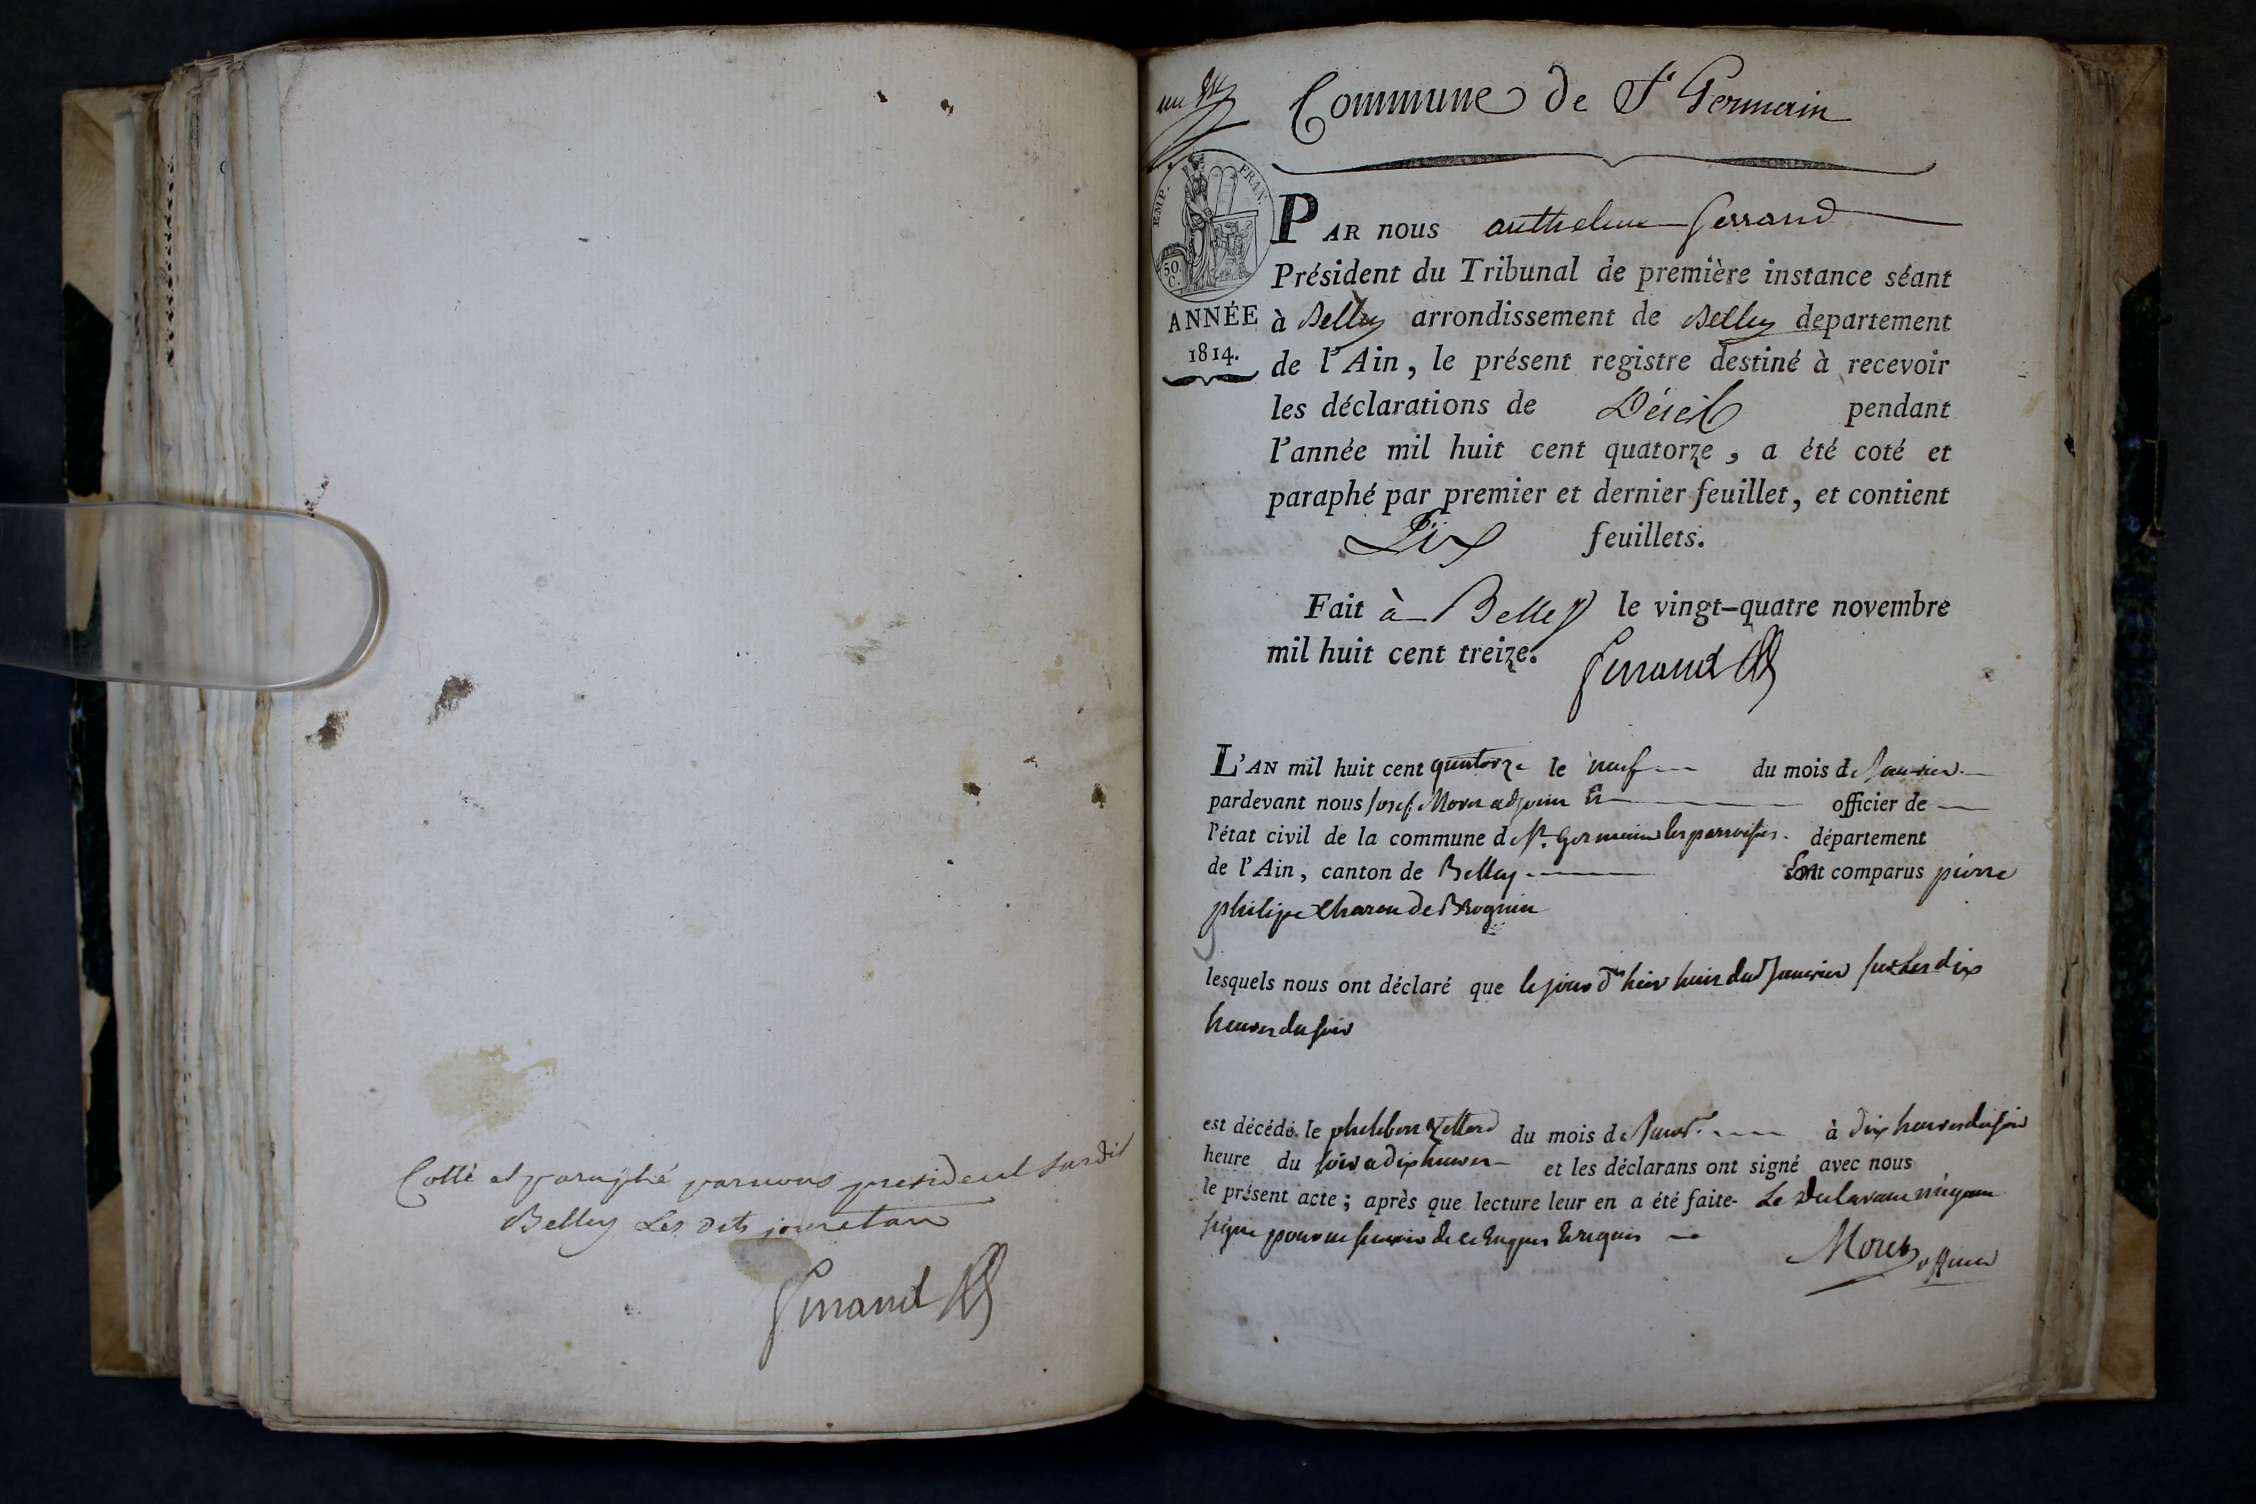 Cotté et paraphé par nous président susdit
Belley les dits jour et an
Commune de St Germain
EMP. FRAN.
50 C.
PAR nous anthelme
Président du Tribunal de première instance séant
ANNÉE
1814.
à Belley arrondissement de Belley departement
de l'Ain, le présent registre destiné à recevoir
les déclarations de Décès pendant
l'année mil huit cent quatorze, a été coté et
paraphé par premier et dernier feuillet, et contient
feuillets.
Fait à Belley le vingt-quatre novembre
mil huit cent treize.
L'AN mil huit cent quatorze le neuf du mois de Janvier
pardevant nous Josef Moret adjoint officier de
l'état civil de la commune de St. Germain les parroisses département
de l'Ain, canton de Belley sont comparus pierre
philipe de Brognin
lesquels nous ont déclaré que le jour d'hier huit du Janvier sur les dix
heures du soir
est décédé le du mois de à dix heures du soir
heure du soir a dix heures et les déclarans ont signé avec nous
le présent acte; après que lecture leur en a été faite Le
signe pour ne savoir de ce enquis
Moret officier